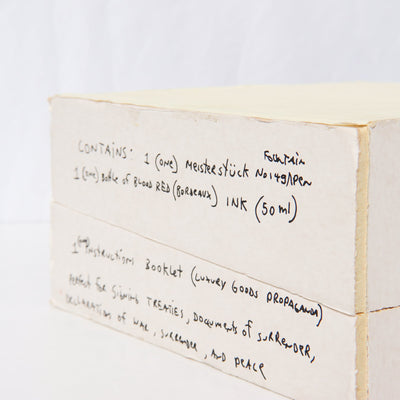 CONTAINS: 1 (ONE) MEISTERSTÜCK No149 FOUNTAIN PEN
1 (ONE) Bottle of BLOOD RED (BORDEAUX) INK (50 ml)
1 (ONE) INSTRUCTION BOOKLET (LUXURY GOODS PROPAGANDA)
PERFECT FOR SIGNING TREATIES, DOCUMENTS of SURRENDER,
DECLARATIONS OF WAR, SURRENDER, AND PEACE